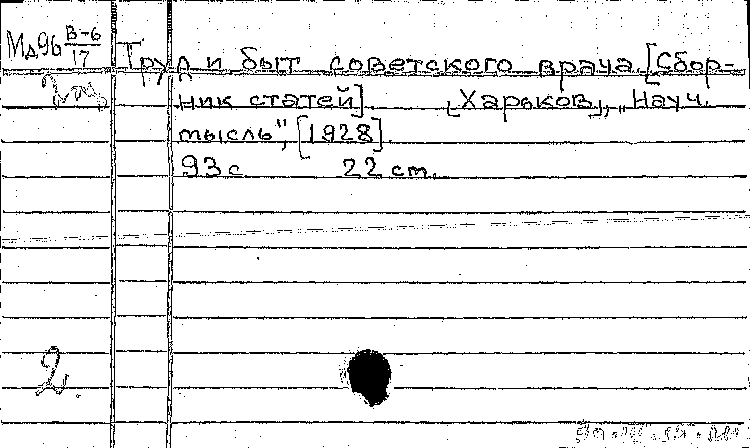 Мд96 В-6/17
Труд и быт советского врача [Сбор-
ник статей]. [Харьков], „Науч.
мысль", [1928].
93 с 22 ст.
2.